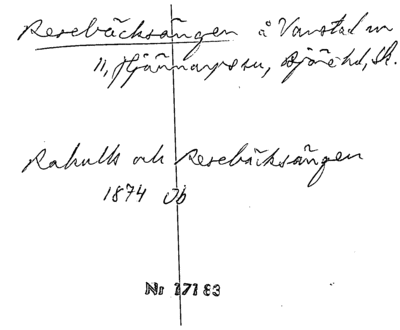 Resebäcksängen å Vanstad nr
11, Hjärnarps sn, Bjäre hd, Sk.
Rahults och Resebäcksängen
1874 Ob
Nr 17183